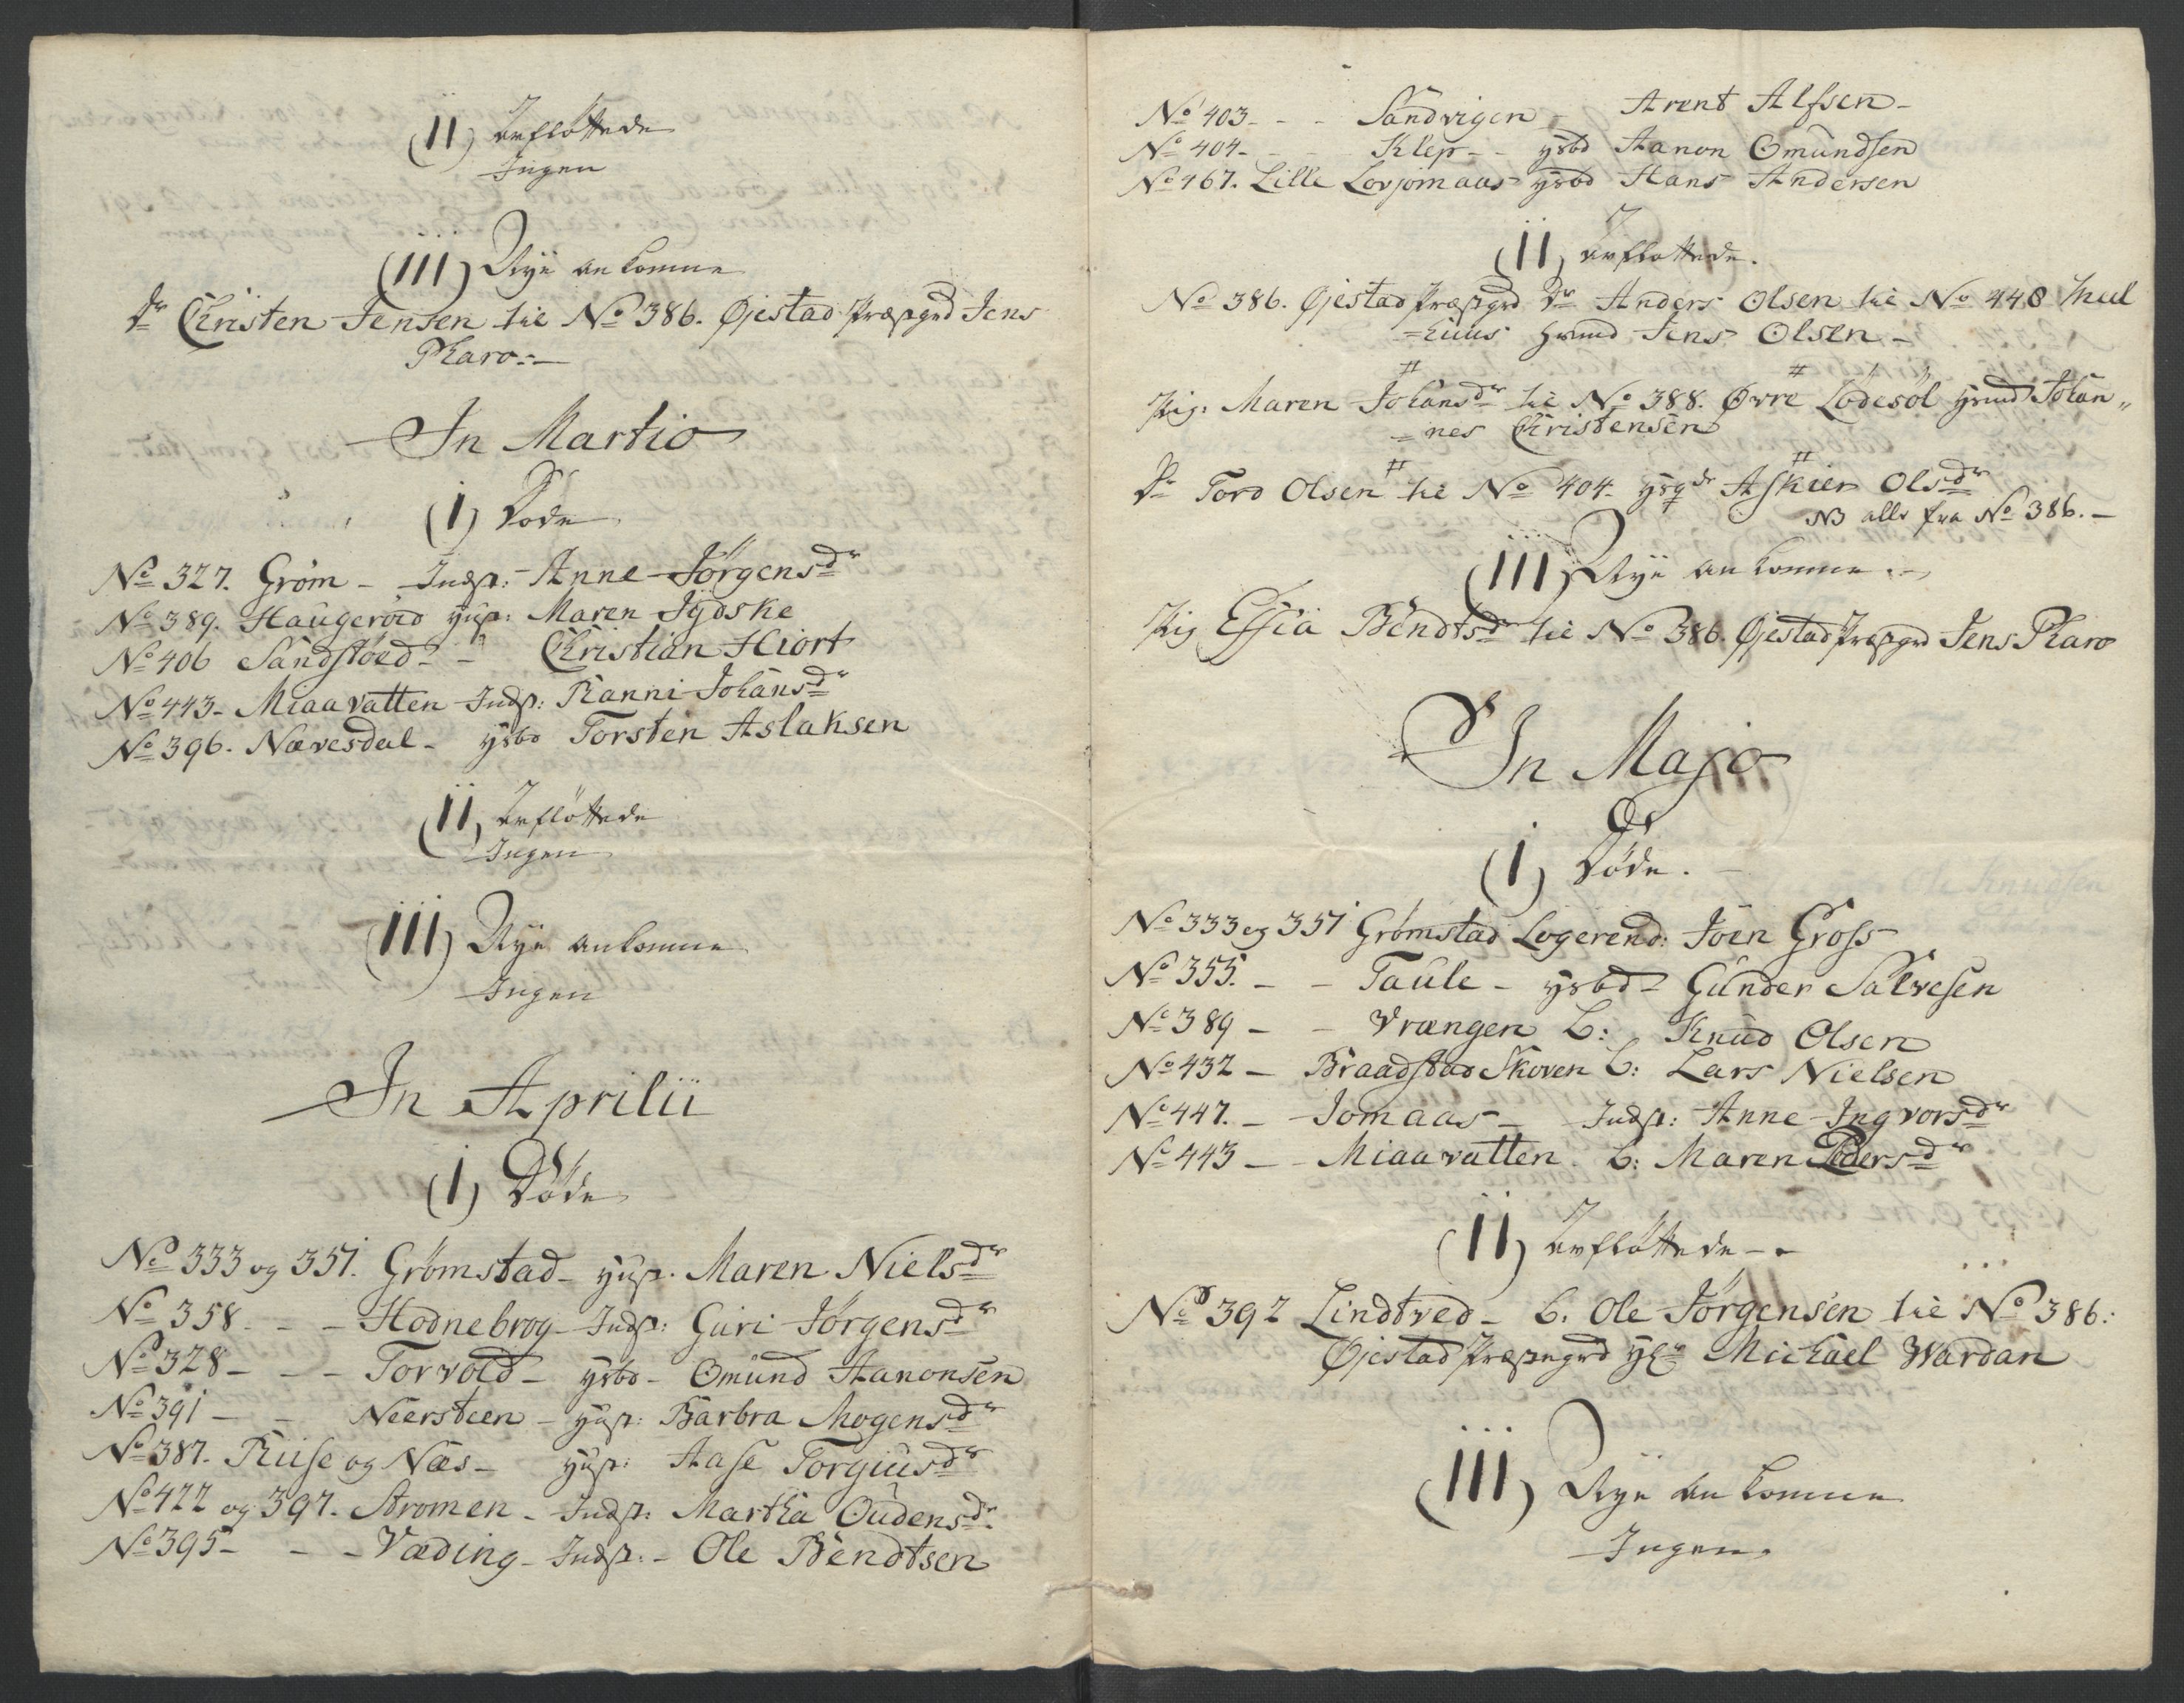 (II) Avfløttede
Ingen
(III) Nye ankomne
Dr Christen Jensen til No 386. Øjestad Præstgrd Jens
Pharo.-
In Martio
(I) Døde
No 327. Grøm - Indst: Anne Jørgensdr
No 389. Haugerøed Hust: Maren Jÿdske
No 406 Sandstøed - - Christian Hiort
No 443 - Miaavatten Indst: Ranni Johansdr
No 396. Nævesdal - Hsbd Torsten Aslaksen
(II) Avfløttede
Ingen
(III) Nye ankomne
Ingen
In Aprilii
(I) Døde
No 333 og 351. Grømstad - Hust. Maren Nielsdr
No 358. - - Hodnebrog - Indst: Guri Jørgensdr
No 328 - - - Torvold - Hsbd - Omund Aanonsen
No 391 - - Neersteen - Hust: Barbra Mogensdr
No 387. Riise og Næs - Hust: Aase Torgiusdr
No 422 og 397. Strømen - Indst: Martha Oudensdr.
No 395 - - - Væding - Indst: - Ole Bendtsen
No 403 - - - Sandvigen - Arent Alfsen -
No 404 - - - Klep - - Hsbd Aanon Omundsen
No 467. Lille Lovjomaas Hsbd Hans Andersen
(II) Avfløttede.
No 386. Øjestad Præstgrd Dr Anders Olsen til No 448 Meel
=huus Hsmd Jens Olsen -
Pig: Maren Johansdr til No 388. Øvre Lødesøl Hsmd Johan,,
=nes Christensen
Dr Tord Olsen til No 404 - Askier Olsdr
NB alle fra No 386. -
(III) Nye ankomne. -
Pig Effia Bendtsdr til No 386. Øjestad Præstgrd Jens Pharo
In Majo
(I) Døde. -
No 333 og 351 Grømstad Logerend: Joen Gross
No 355. - - Taule - Hsbd - Gunder Salvesen
No 389 - - Vrængen b: Knud Olsen
No 432 - Braadstad Skoven b: Lars Nielsen
No 447. - Jomaas - Indst: Anne Ingvorsdr
No 443 - - Miaavatten. b: Maren Pedersdr
(II) Avfløttede - -
No 392 Lindtved - b. Ole Jørgensen til No 386:
Øjestad Præstegrd Hr Michael Wardan
(III) Nye ankomne
Ingen.